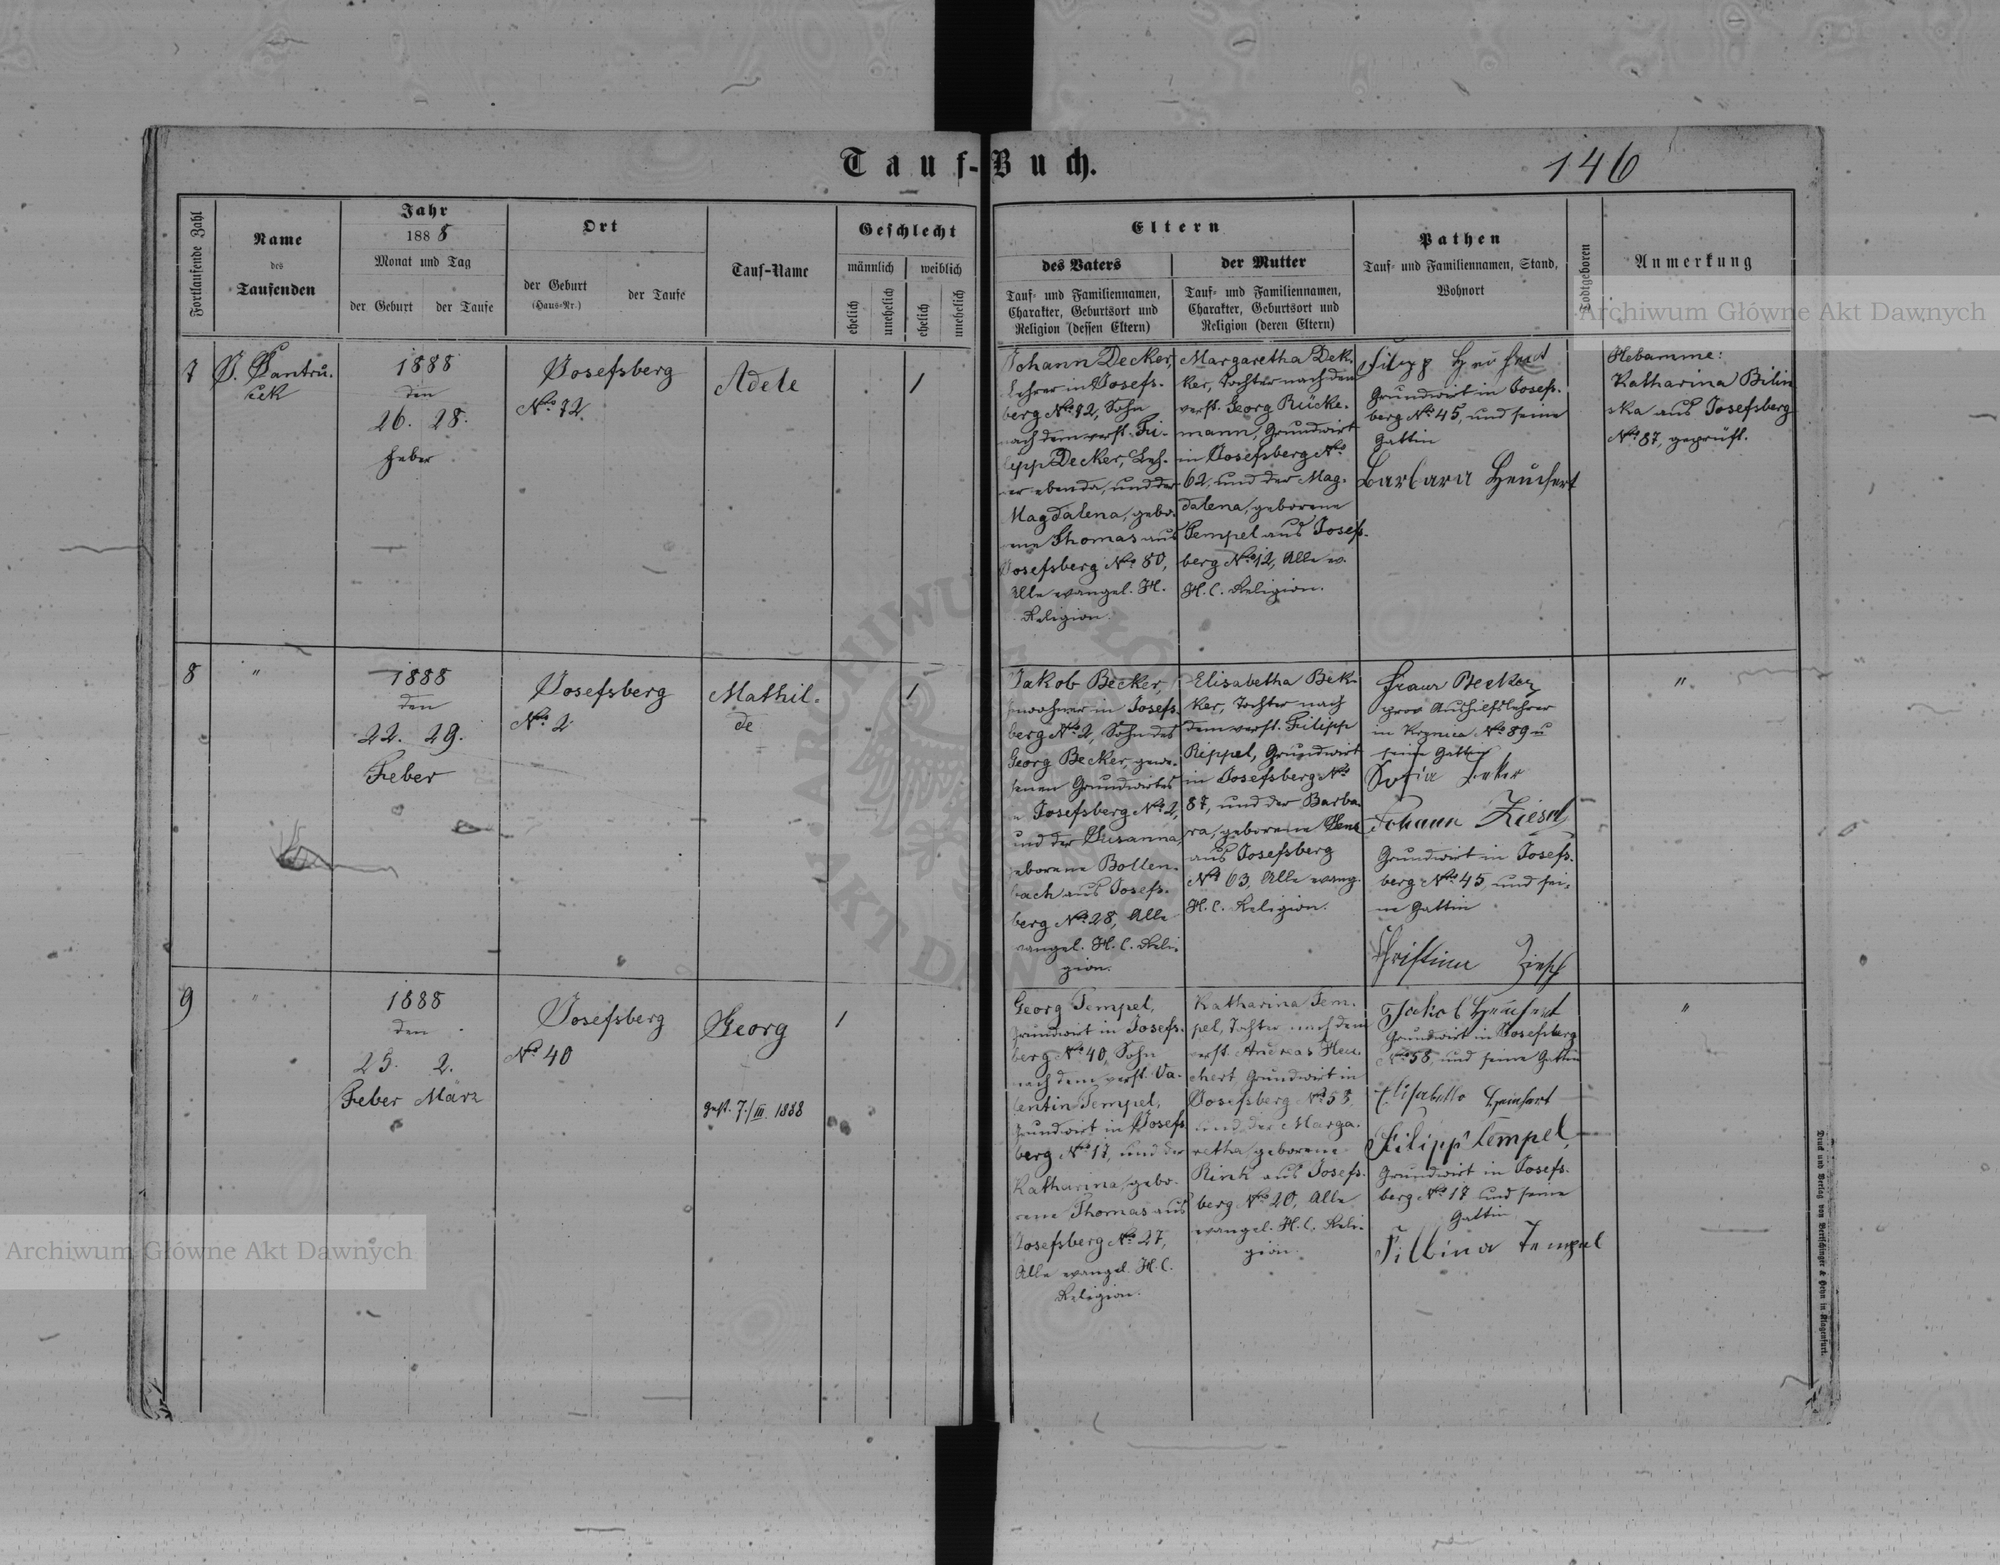 Tauf-Buch.
146
Fortlaufende Zahl
Name
des
Taufenden
Jahr
1888
Monat und Tag
der Geburt
der Taufe
Ort
der Geburt
(Haus-Nr.)
der Taufe
Tauf-Name
Geschlecht
männlich
weiblich
ehelich
unehelich
ehelich
unehelich
Eltern
des Vaters
Tauf- und Familiennamen,
Charakter, Geburtsort und
Religion (dessen Eltern)
der Mutter
Tauf- und Familiennamen,
Charakter, Geburtsort und
Religion (deren Eltern)
Pathen
Tauf- und Familiennamen, Stand,
Wohnort
Todtgeboren
Anmerkung
7
1888
den
26. 28.
Feber
Josefsberg
No. 72
Adele
1
Johann Decker,
Lehrer in Josefs-
berg No. 72, Sohn
nach dem verst. Fi-
lipp Decker, Leh-
rer ebenda, und der
Magdalena, gebo-
rene Thomas aus
Josefsberg No. 80,
Alle evangel. H.
Religion.
Margaretha Dek-
ker, Tochter nach dem
verst. Georg Rücke-
mann, Grundwirt
in Josefsberg No.
62, und der Mag-
dalena, geborene
Tempel aus Josefs-
berg No. 12, Alle ev.
H. C. Religion.
Filipp Heuchert
Grundwirt in Josefs-
berg No. 45, und seine
Gattin
Barbara Heuchert
Hebamme:
Katharina Bilin
ska aus Josefsberg
No. 87, geprüft.
8
"
1888
den
22. 29.
Feber
Josefsberg
No. 2
Mathil-
de
1
Jakob Becker,
Inwohner in Josefs-
berg No. 2, Sohn des
Georg Becker, gewe-
senen Grundwirtes
in Josefsberg No. 2,
und der Susanna,
geborene Bollen-
bach aus Josefs-
berg No. 28, Alle
evangel. H. C. Reli-
gion.
Elisabetha Bek-
ker, Tochter nach
dem verst. Filipp
Rippel, Grundwirt
in Josefsberg No.
87, und der Barba-
ra, geborene
aus Josefsberg
No. 63, Alle evang.
H. C. Religion.
Becker
prov Aushilfslehrer
in Krynica No. 89 u
seine Gattin
Sofia Beker
Johann
Grundwirt in Josefs-
berg No. 45, und sei-
ne Gattin
Christina
"
9
"
1888
den
25. 2.
Feber März
Josefsberg
No. 40
Georg
gest. 7./III. 1888
1
Georg Tempel,
Grundwirt in Josefs-
berg No. 40, Sohn
nach dem verst. Va-
lentin Tempel,
Grundwirt in Josefs
berg No. 17, und der
Katharina, gebo-
rene Thomas aus
Josefsberg No. 27,
Alle evangel. H. C.
Religion.
Katharina Tem-
pel, Tochter nach dem
verst. Andreas Heu-
chert, Grundwirt in
Josefsberg No. 53,
und der Marga-
retha, geborene
Rink aus Josefs-
berg No. 20, Alle
evangel. H. C. Reli-
gion.
Jakob Heuchert
Grundwirt in Josefsberg
No. 58, und seine Gattin
Elisabetha Heuchert
Filipp Tempel,
Grundwirt in Josefs-
berg No. 17 und seine
Gattin
Filbina Tempel
"
Druck und Verlag von Bertschinger & Hehn in Klagenfurt.
Archiwum Główne Akt Dawnych
Archiwum Główne Akt Dawnych